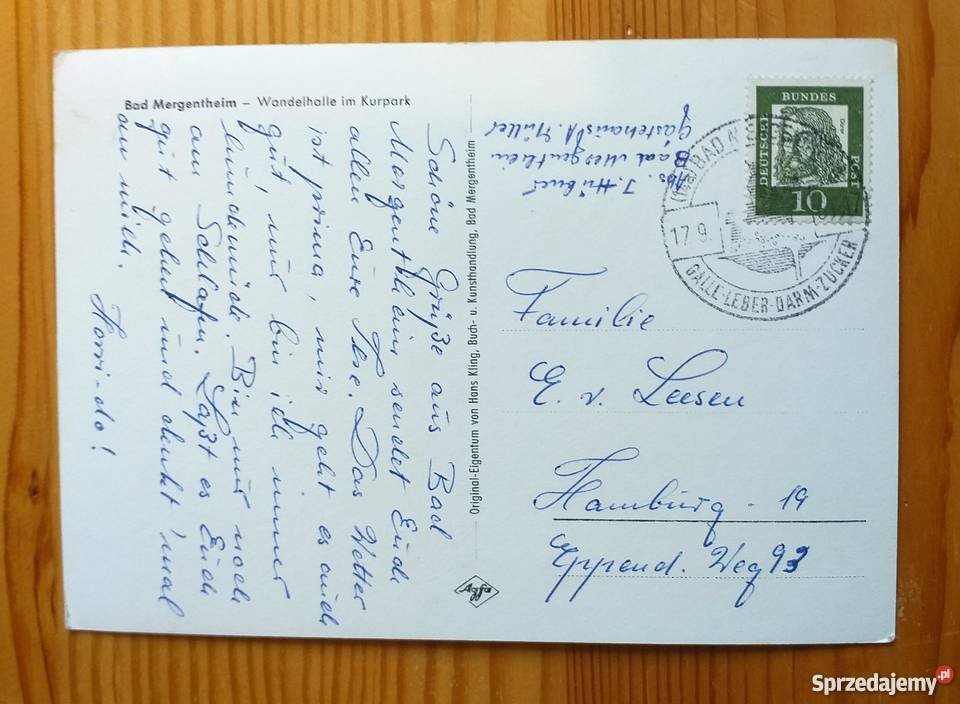 Bad Mergentheim – Wandelhalle im Kurpark
Schöne Grüße aus Bad
Mergentheim sendet Euch
allen Eure Ilse. Das Wetter
ist prima, mir geht es auch
gut, nur bin ich immer
hundemüde. Bin nur noch
am Schlafen. Laßt es Euch
gut gehen und denkt mal
an mich.
Horri-do!
Original-Eigentum von Hans Kling, Buch- u. Kunsthandlung, Bad Mergentheim
Abs. I. Hübner
Bad Mergentheim
Gästehaus A. Müller
DEUTSCHE
BUNDES
POST
Dürer
10
BAD
17.9.
GALLE-LEBER-DARM-ZUCKER
Familie
E. v. Leesen
Hamburg - 19
Eppend. Weg 93
Agfa
Sprzedajemy.pl